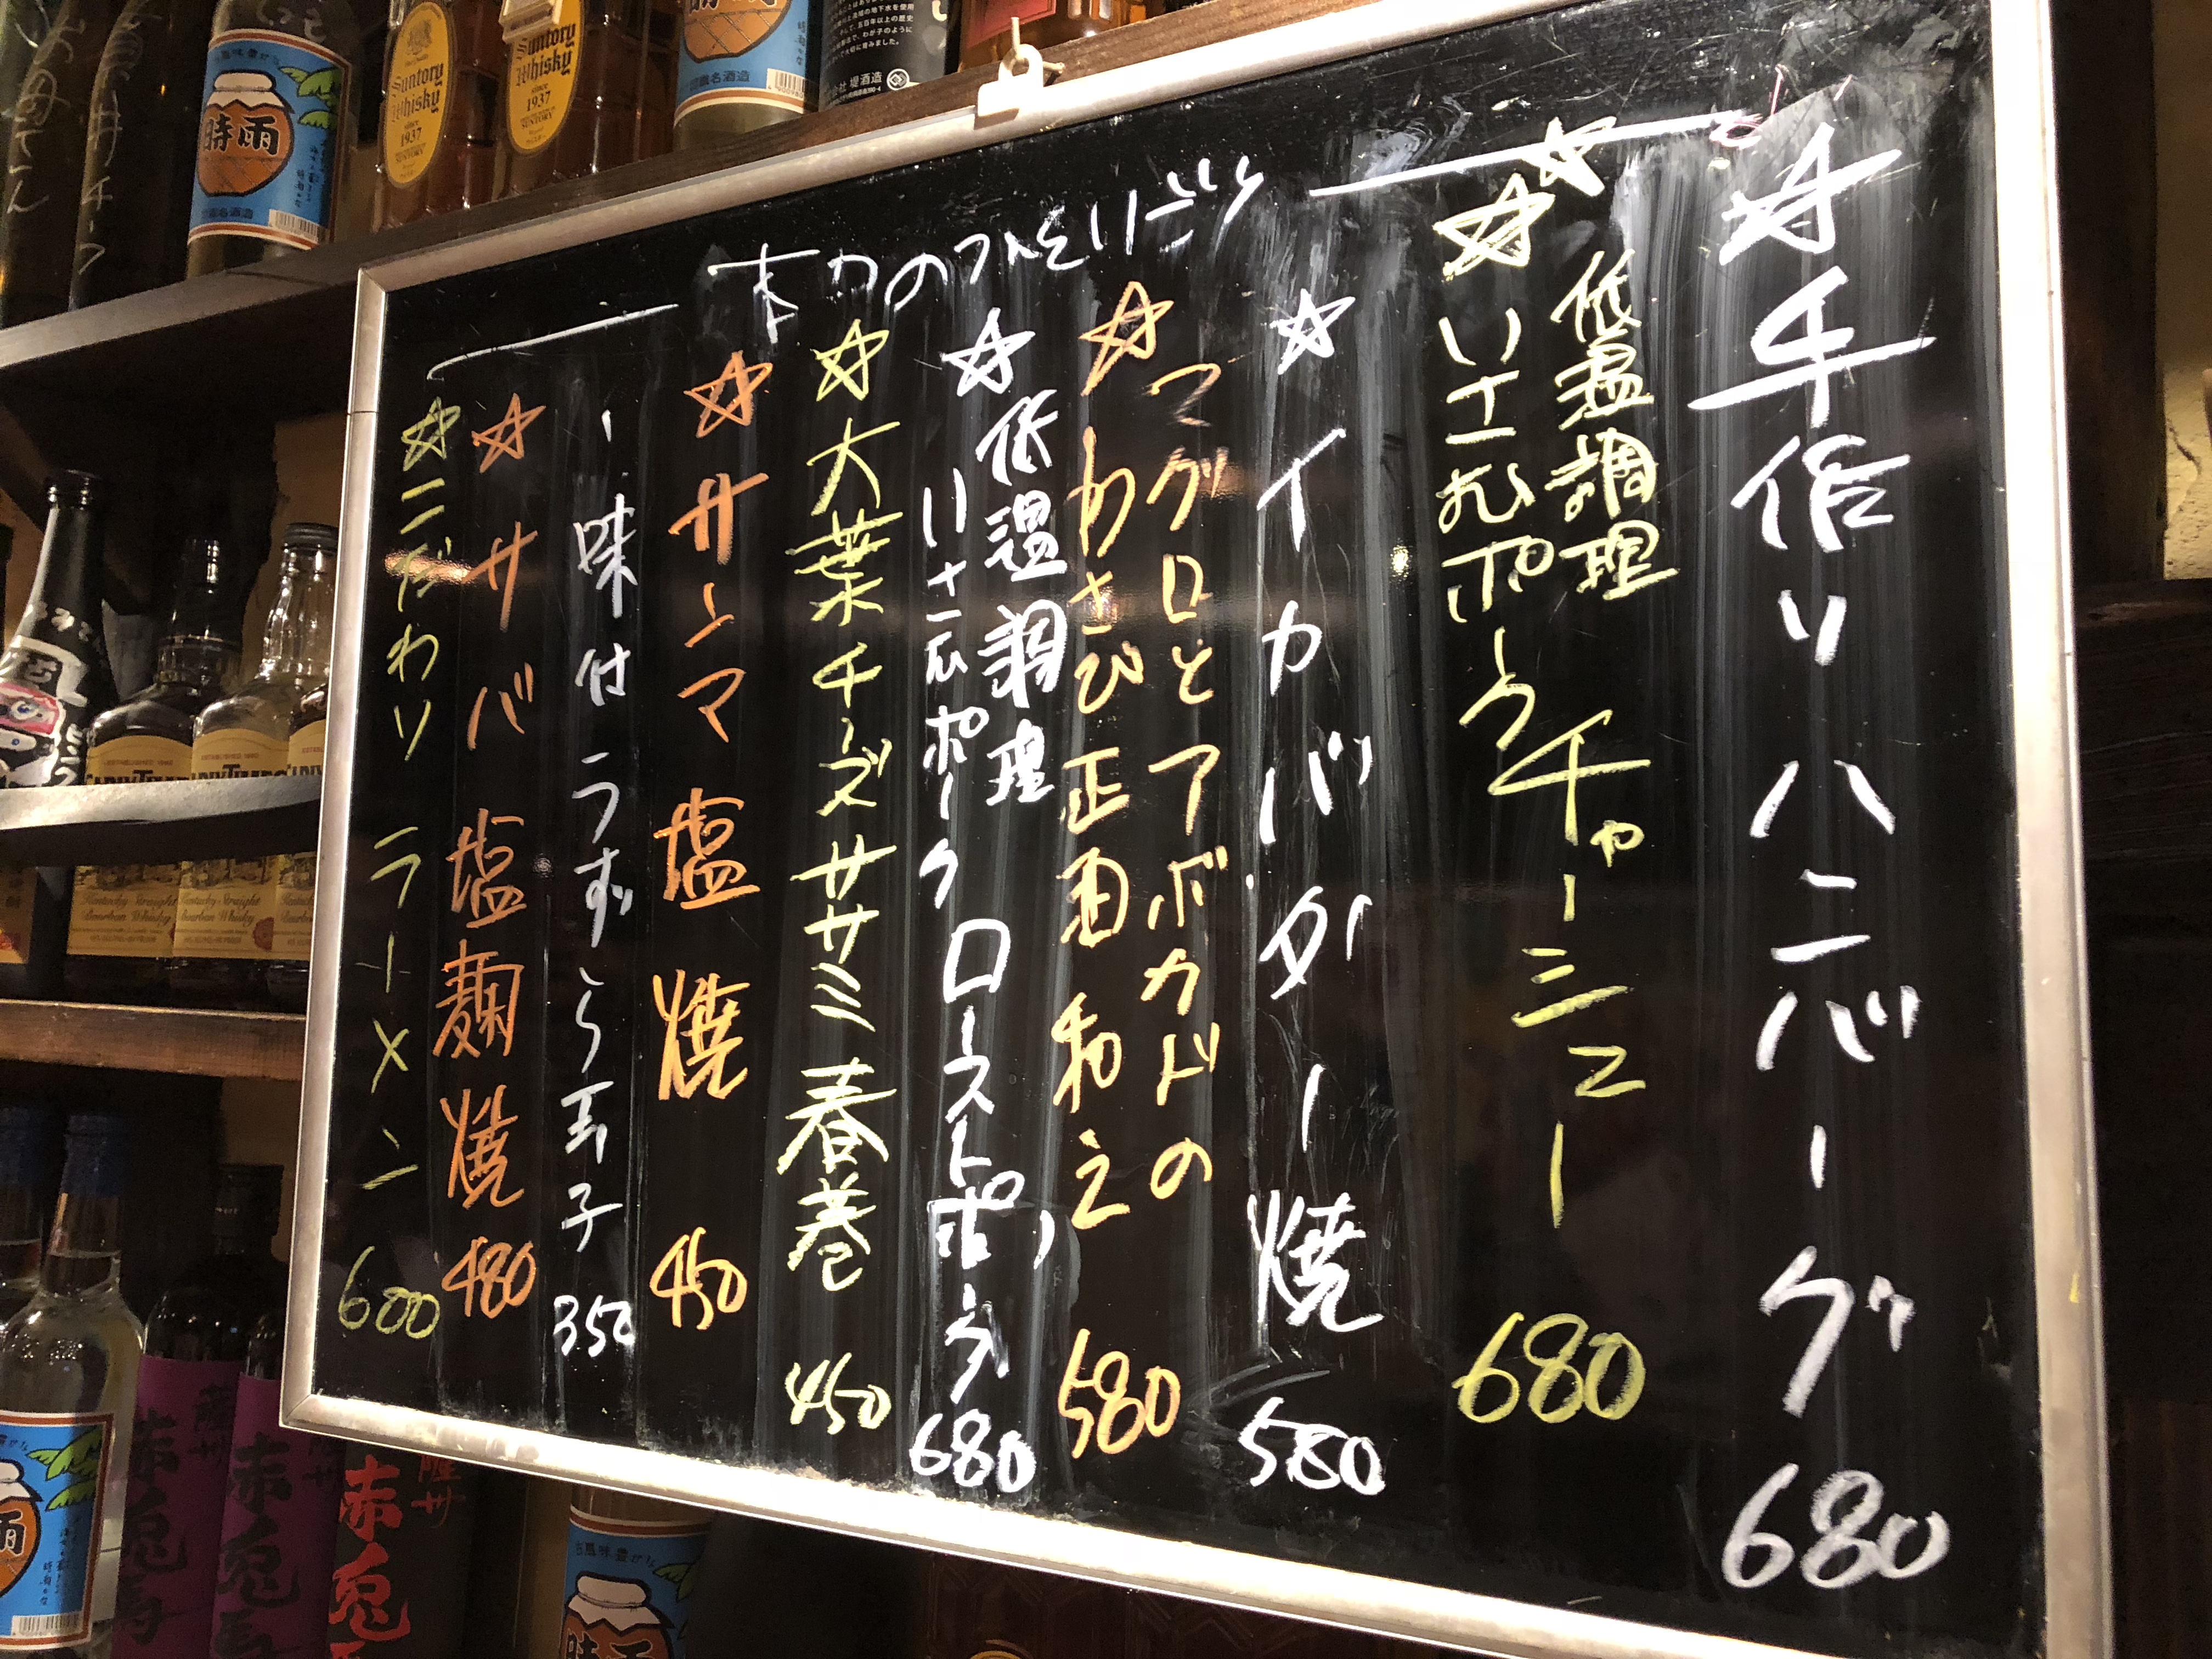 手作りハンバーグ 680
低温調理
チャーシュー 680
イカバター焼 580
マグロとアボカドの
わさび正油和え 580
低温調理
ローストポーク 680
大葉チーズササミ春巻 450
サーマ塩焼 450
味付うずら玉子 350
サバ塩麹焼 480
こだわりラーメン 600
時雨
Suntory
Whisky
since
1937
SUNTORY
Suntory
Whisky
since
1937
SUNTORY
Kentucky Straight
Bourbon Whisky
薩州
赤兎馬
薩州
赤兎馬
薩州
赤兎